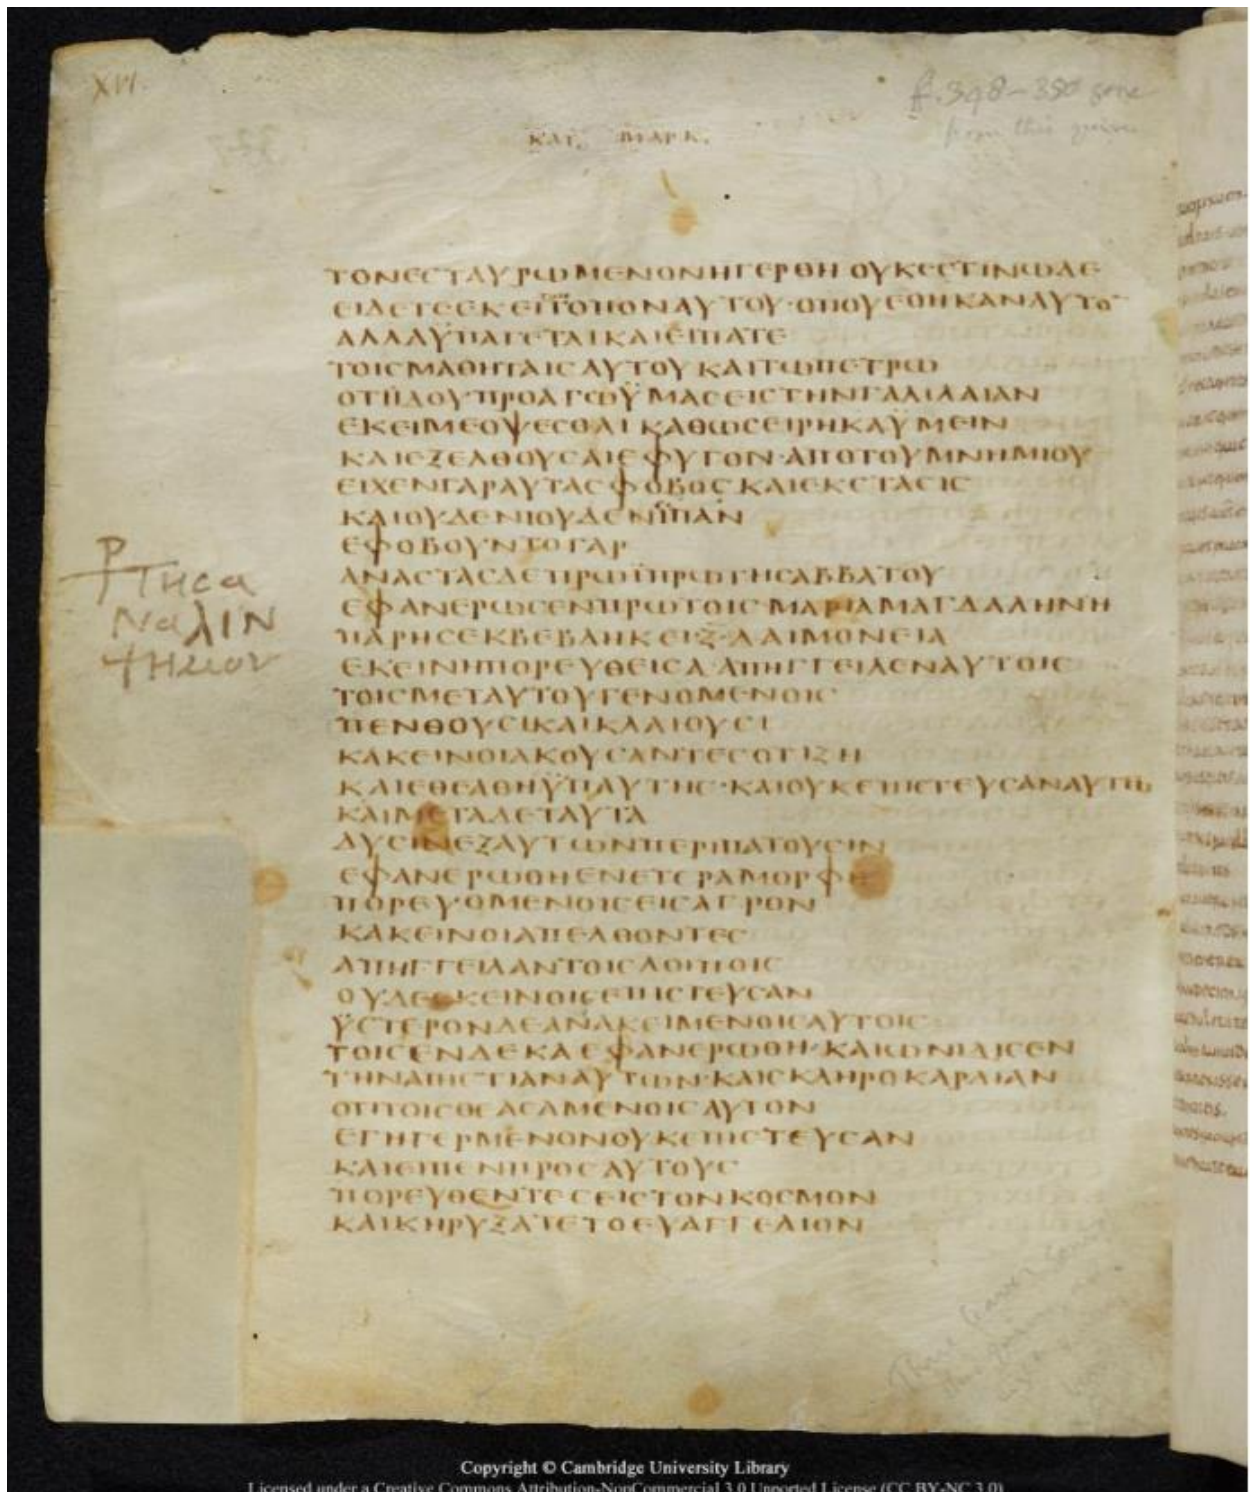 XVI.
f. 348-350 gone
from this quire
ΚΑΤ. ΜΑΡΚ.
ΤΟΝΕϹΤΑΥΡΩΜΕΝΟΝΗΓΕΡΘΗ ΟΥΚΕϹΤΙΝΩΔΕ
ΕΙΔΕΤΕΕΚΕΙΤΟΠΟΝΑΥΤΟΥ·ΟΠΟΥΕΘΗΚΑΝΑΥΤΟ¯
ΑΛΛΑΫΠΑΓΕΤΑΙΚΑΙΕΙΠΑΤΕ
ΤΟΙϹΜΑΘΗΤΑΙϹΑΥΤΟΥΚΑΙΤΩΠΕΤΡΩ
ΟΤΙΪΔΟΥΠΡΟΑΓΩΫΜΑϹΕΙϹΤΗΝΓΑΛΙΛΑΙΑΝ
ΕΚΕΙΜΕΟΨΕϹΘΑΙΚΑΘΩϹΕΙΡΗΚΑΫΜΕΙΝ
ΚΑΙΕΞΕΛΘΟΥϹΑΙΕΦΥΓΟΝ·ΑΠΟΤΟΥΜΝΗΜΙΟΥ
ΕΙΧΕΝΓΑΡΑΥΤΑϹΦΟΒΟϹΚΑΙΕΚϹΤΑϹΙϹ
ΚΑΙΟΥΔΕΝΙΟΥΔΕΝΪΠΑΝ
ΕΦΟΒΟΥΝΤΟΓΑΡ
ΑΝΑϹΤΑϹΔΕΠΡΩΪΠΡΩΤΗϹΑΒΒΑΤΟΥ
ΕΦΑΝΕΡΩϹΕΝΠΡΩΤΟΙϹΜΑΡΙΑΜΑΓΔΑΛΗΝΗ
ΠΑΡΗϹΕΚΒΕΒΛΗΚΕΙ·Ζ·ΔΑΙΜΟΝΕΙΑ
ΕΚΕΙΝΗΠΟΡΕΥΘΕΙϹΑ·ΑΠΗΓΓΕΙΛΕΝΑΥΤΟΙϹ
ΤΟΙϹΜΕΤΑΥΤΟΥΓΕΝΟΜΕΝΟΙϹ
ΠΕΝΘΟΥϹΙΚΑΙΚΛΑΙΟΥϹΙ
ΚΑΚΕΙΝΟΙΑΚΟΥϹΑΝΤΕϹΟΤΙΖΗ
ΚΑΙΕΘΕΑΘΗΫΠΑΥΤΗϹ·ΚΑΙΟΥΚΕΠΙϹΤΕΥϹΑΝΑΥΤΗ
ΚΑΙΜΕΤΑΔΕΤΑΥΤΑ
ΔΥϹΙΝΕΞΑΥΤΩΝΠΕΡΙΠΑΤΟΥϹΙΝ
ΕΦΑΝΕΡΩΘΗΕΝΕΤΕΡΑΜΟΡΦΗ
ΠΟΡΕΥΟΜΕΝΟΙϹΕΙϹΑΓΡΟΝ
ΚΑΚΕΙΝΟΙΑΠΕΛΘΟΝΤΕϹ
ΑΠΗΓΓΕΙΛΑΝΤΟΙϹΛΟΙΠΟΙϹ
ΟΥΔΕΕΚΕΙΝΟΙϹΕΠΙϹΤΕΥϹΑΝ
ΫϹΤΕΡΟΝΔΕΑΝΑΚΕΙΜΕΝΟΙϹΑΥΤΟΙϹ
ΤΟΙϹΕΝΔΕΚΑΕΦΑΝΕΡΩΘΗ·ΚΑΙΩΝΙΔΙϹΕΝ
ΤΗΝΑΠΙϹΤΙΑΝΑΥΤΩΝ·ΚΑΙϹΚΛΗΡΟΚΑΡΔΙΑΝ
ΟΤΙΤΟΙϹΘΕΑϹΑΜΕΝΟΙϹΑΥΤΟΝ
ΕΓΗΓΕΡΜΕΝΟΝΟΥΚΕΠΙϹΤΕΥϹΑΝ
ΚΑΙΕΙΠΕΝΠΡΟϹΑΥΤΟΥϹ
ΠΟΡΕΥΘΕΝΤΕϹΕΙϹΤΟΝΚΟϹΜΟΝ
ΚΑΙΚΗΡΥΞΑΤΕΤΟΕΥΑΓΓΕΛΙΟΝ
Copyright © Cambridge University Library
Licensed under a Creative Commons Attribution-NonCommercial 3.0 Unported License (CC BY-NC 3.0)